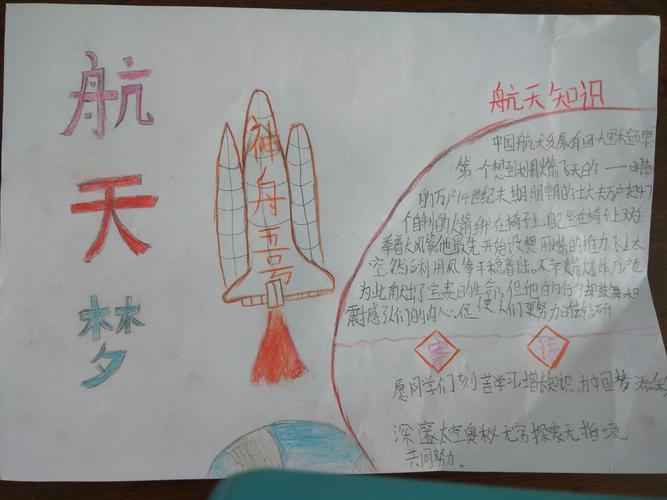 航天梦
神舟五号
航天知识
中国航天发展有四大里程碑
第一个想到利用火箭飞天的——明朝
的万户14世纪末期明朝的士大夫万户把47
个自制的火箭绑在椅子上,自己坐在椅子上双手
举着大风筝他最先开始设想用火箭的推力飞上太
空,然后利用风筝平稳着陆。不幸火箭爆炸万户也
为此献出了宝贵的生命,但他的行为却鼓舞和
震感了人们的内心。促使人们更努力的去钻研
寄语
愿同学们刻苦学习,增长知识,为中国梦添
深邃太空奥秘无穷探索无止境
共同努力。